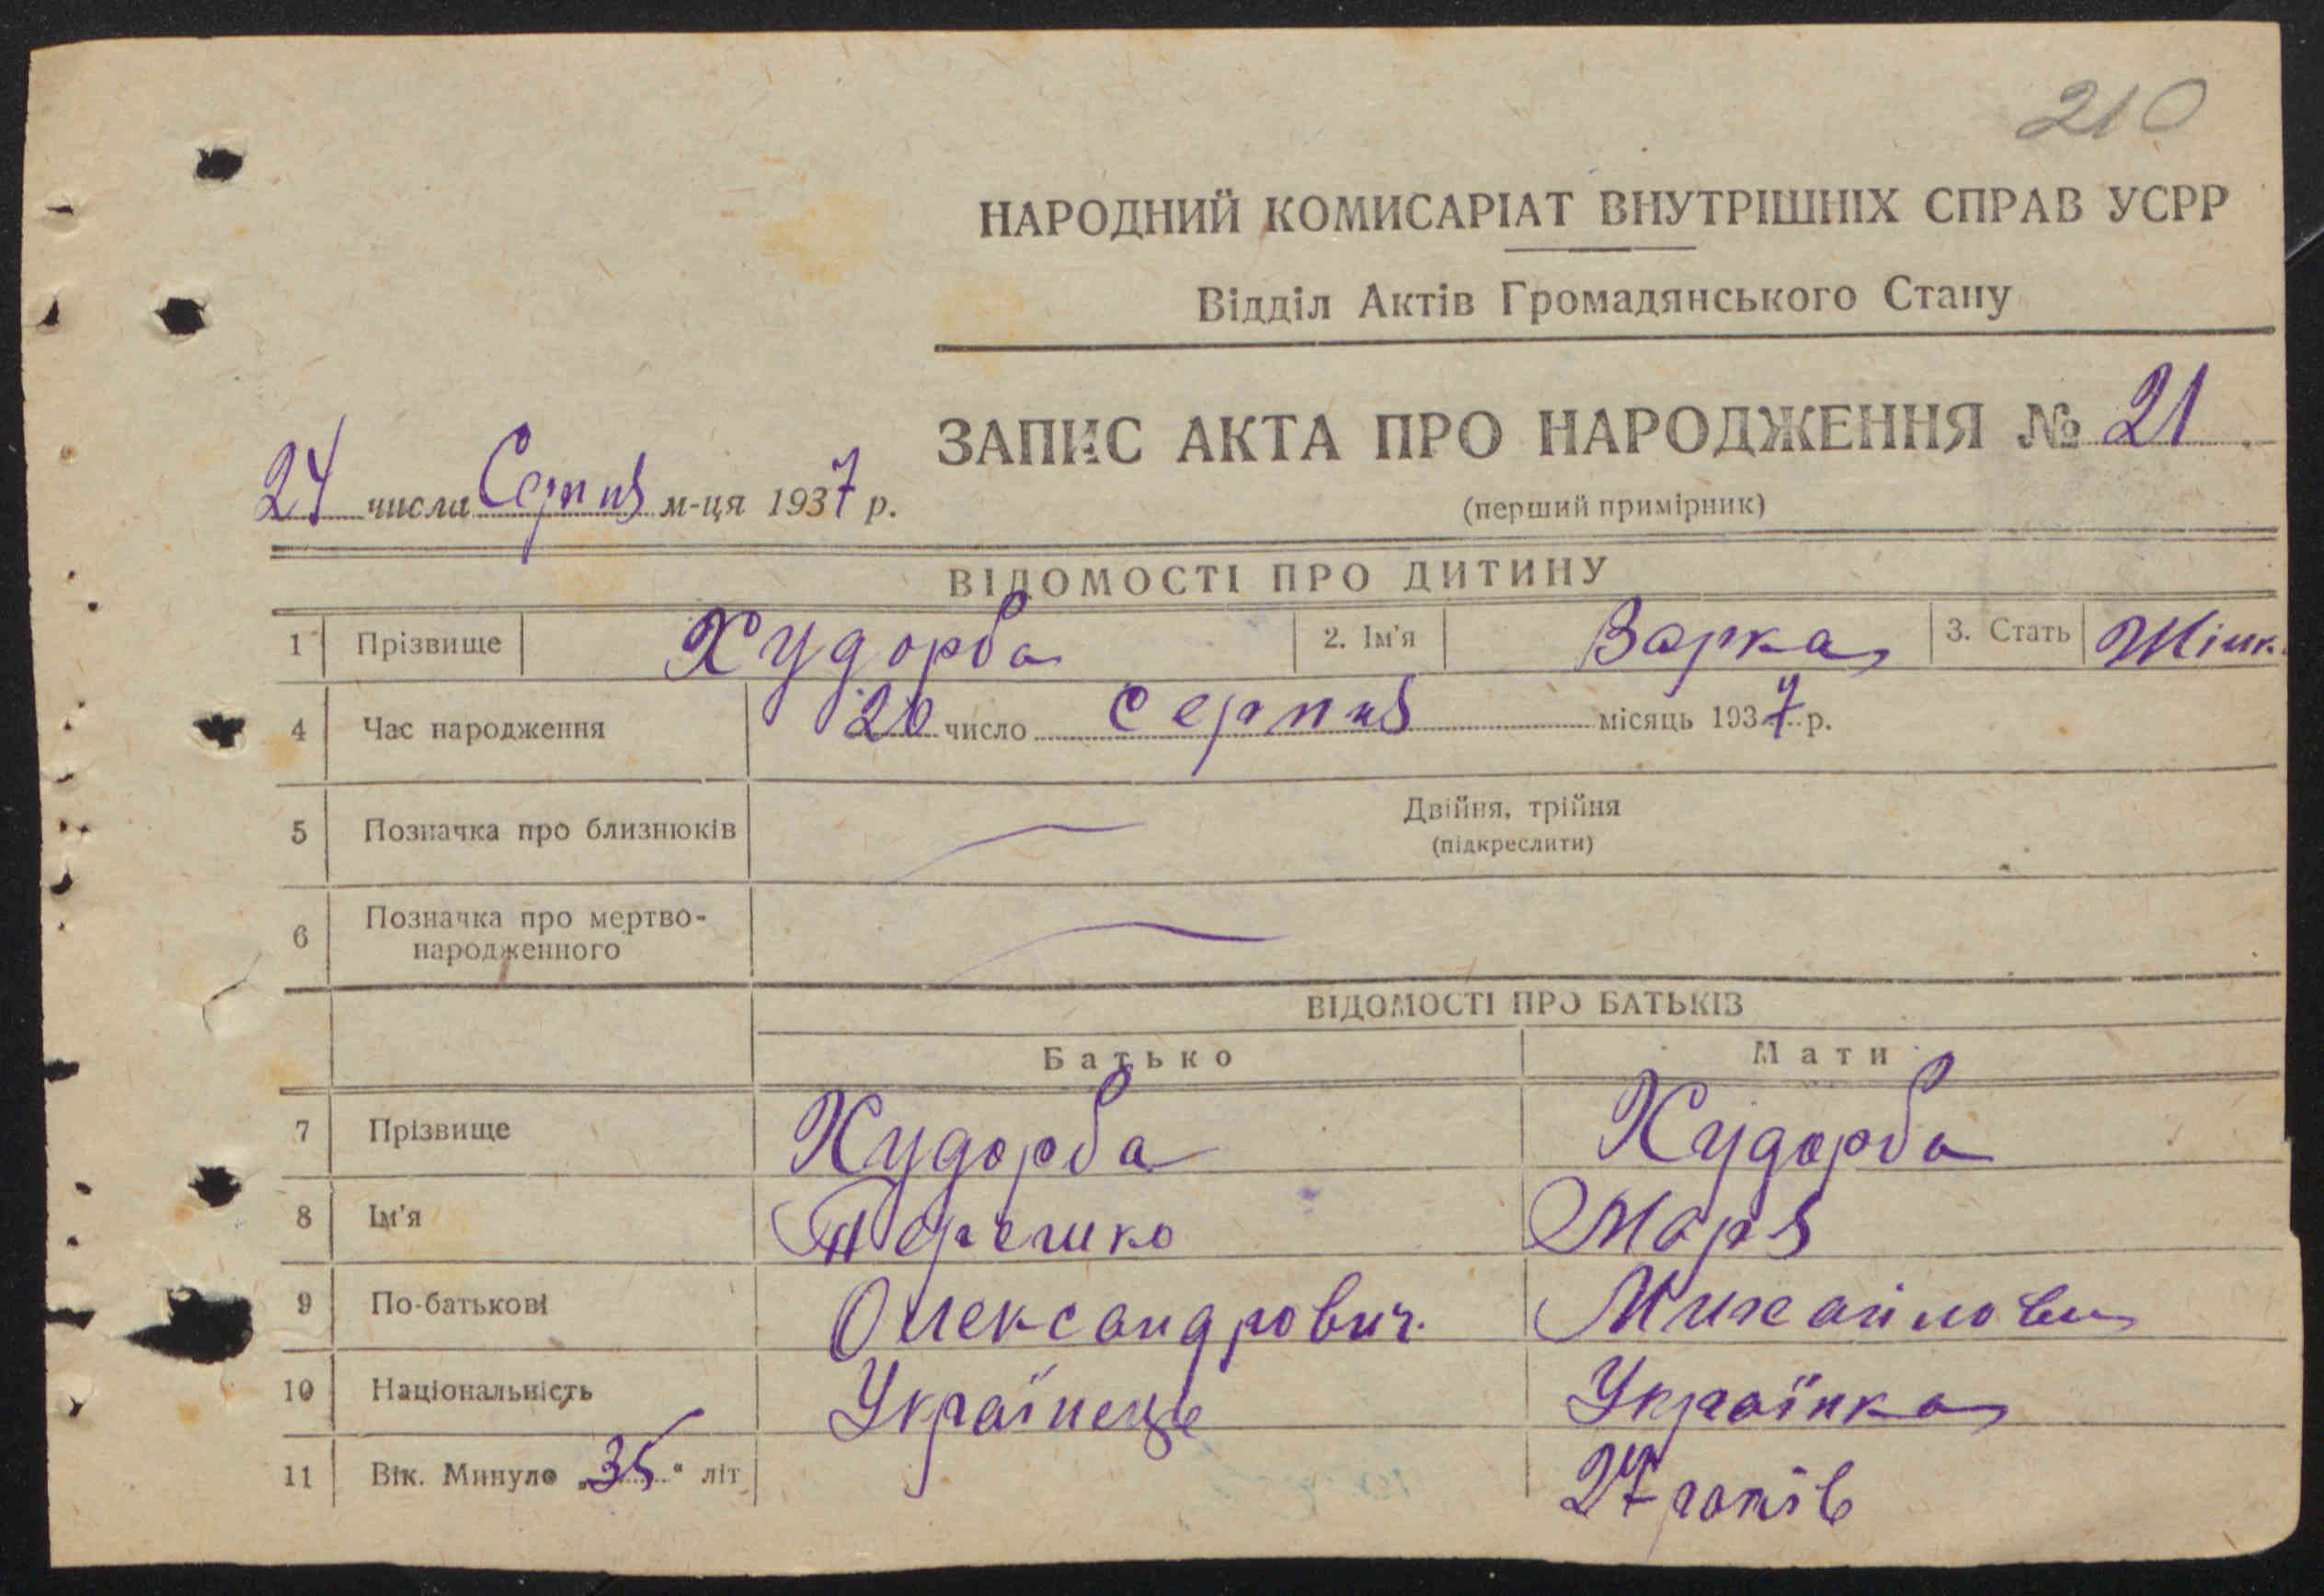 210
НАРОДНИЙ КОМИСАРІАТ ВНУТРІШНІХ СПРАВ УСРР
Відділ Актів Громадянського Стану
ЗАПИС АКТА ПРО НАРОДЖЕННЯ № 21
24 числа Серпня м-ця 1937 р.
(перший примірник)
ВІДОМОСТІ ПРО ДИТИНУ
1 Прізвище Худорба 2. Ім'я Варка 3. Стать Жінк.
4 Час народження 20 число Серпня місяць 1937 р.
5 Позначка про близнюків Двійня, трійня
(підкреслити)
6 Позначка про мертво-
народженного
ВІДОМОСТІ ПРО БАТЬКІВ
Батько Мати
7 Прізвище Худорба Худорба
8 Ім'я Терешко Маря
9 По-батькові Олександрович. Михайловна
10 Національність Українець Українка
11 Вік. Минуло „35“ літ 27 років